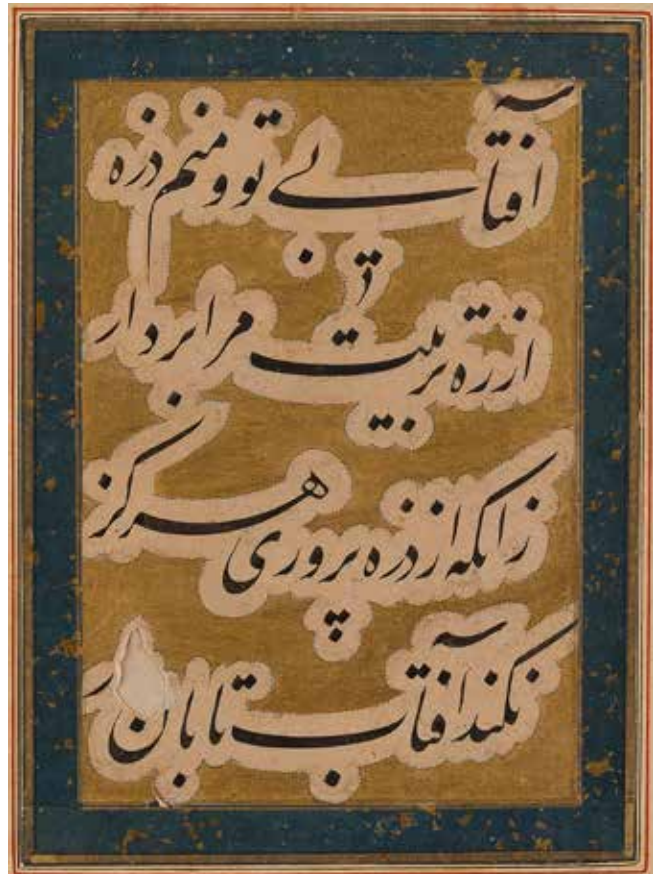 آفتابی تو و منم ذره
از ره تربیت مرا بردار
زانکه از ذره پروری هرگز
نکند آفتاب تابان